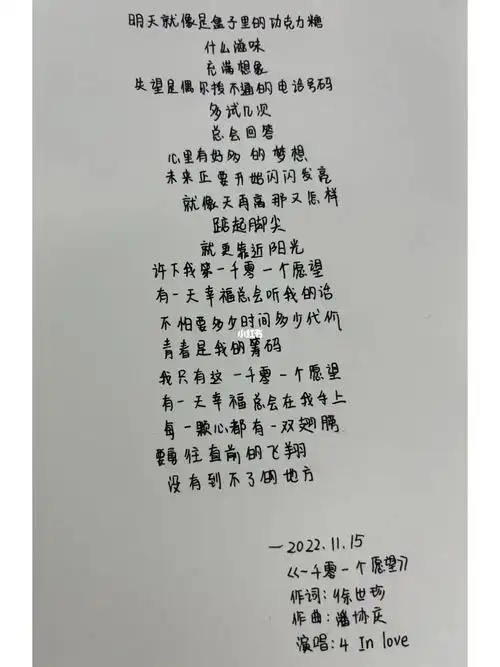 明天就像是盒子里的功克力糖
什么滋味
充满想象
失望是偶尔拨不通的电话号码
多试几次
总会回答
心里有好多的梦想
未来正要开始闪闪发亮
就像天再高那又怎样
踮起脚尖
就更靠近阳光
许下我第一千零一个愿望
有一天幸福总会听我的话
不怕要多少时间多少代价
青春是我的筹码
小红书
我只有这一千零一个愿望
有一天幸福总会在我手上
每一颗心都有一双翅膀
要勇往直前的飞翔
没有到不了的地方
—2022.11.15
《一千零一个愿望》
作词:徐世珍
作曲:潘协庆
演唱:4 In love